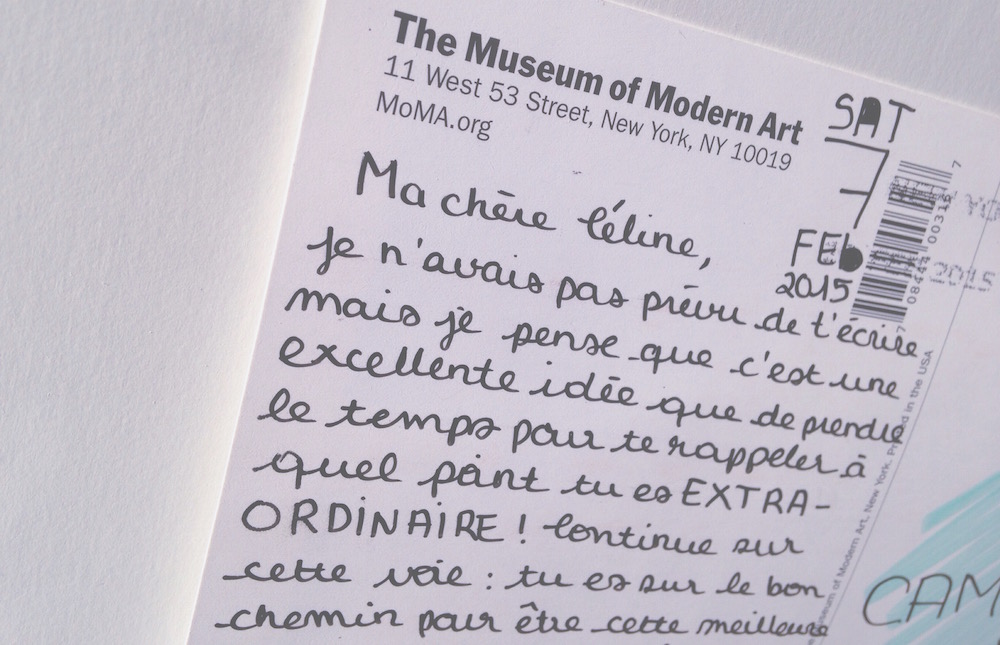 The Museum of Modern Art
11 West 53 Street, New York, NY 10019
MoMA.org
SAT
7
FEb
2015
Ma chère Céline,
Je n'avais pas prévu de t'écrire
mais je pense que c'est une
excellente idée que de prendre
le temps pour te rappeler à
quel point tu es EXTRA-
ORDINAIRE ! Continue sur
cette voie : tu es sur le bon
chemin pour être cette meilleure
7
08444 00315
7
2015
Museum of Modern Art, New York. Printed in the USA
CAM